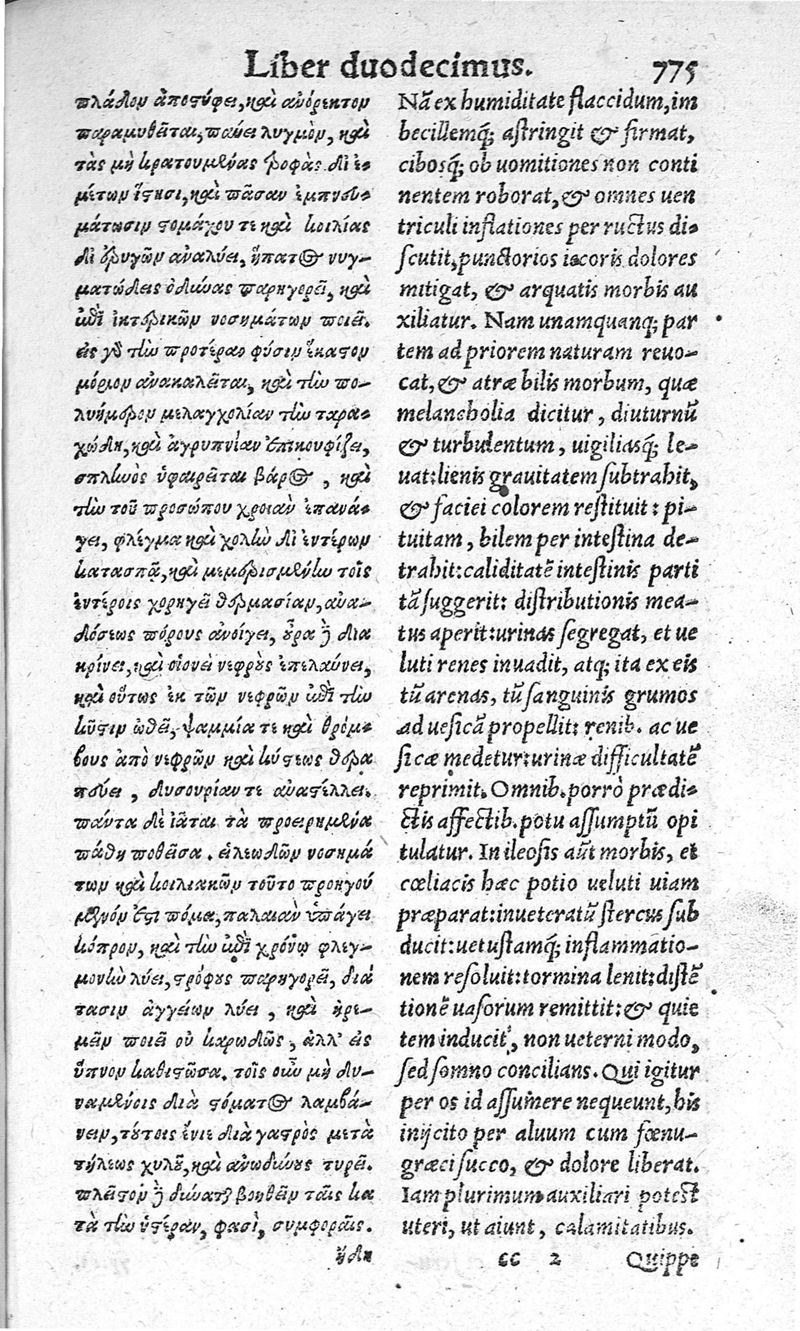 Liber duodecimus. 775
πλάδον ἀποστύφει, καὶ ἀνόρεκτον
παραμυθεῖται, παύει λυγμὸν, καὶ
τὰς μὴ κρατουμένας τροφὰς δι' ἐ-
μέτων ἵστησι, καὶ πᾶσαν ἐμπνευ-
μάτωσιν στομάχου τε καὶ κοιλίας
δι' ἐρυγῶν ἀναλύει, ἥπατος νυγ-
ματώδεις ὀδύνας παρηγορεῖ, καὶ
ἐπὶ ἰκτερικῶν νοσημάτων ποιεῖ.
εἰς γὰρ τὴν προτέραν φύσιν ἕκαστον
μόριον ἀνακαλεῖται, καὶ τὴν πο-
λυήμερον μελαγχολίαν τὴν ταρα-
χώδη, καὶ ἀγρυπνίαν ἐπικουφίζει,
σπληνὸς ὑφαιρεῖται βάρος, καὶ
τὴν τοῦ προσώπου χροιὰν ἐπανά-
γει, φλέγμα καὶ χολὴν δι' ἐντέρων
κατασπᾷ, καὶ μεμερισμένην τοῖς
ἐντέροις χορηγεῖ θερμασίαν, ἀνα-
δόσεως πόρους ἀνοίγει, οὖρα δὲ δια
κρίνει, καὶ οἱονεὶ νεφροὺς ἐπελαύνει,
καὶ οὕτως ἐκ τῶν νεφρῶν ἐπὶ τὴν
κύστιν ὠθεῖ, ψαμμία τε καὶ θρόμ-
βους ἀπὸ νεφρῶν καὶ κύστεως θερα
πεύει, δυσουρίαν τε ἀναστέλλει.
πάντα δὲ ἰᾶται τὰ προειρημένα
πάθη ποθεῖσα. εἰλεωδῶν νοσημά
των καὶ κοιλιακῶν τοῦτο προηγού
μενόν ἐστι πόμα, παλαιὰν ὑπάγει
κόπρον, καὶ τὴν ἐπὶ χρόνῳ φλεγ-
μονὴν λύει, στρόφους παρηγορεῖ, διά
τασιν ἀγγείων λύει, καὶ ἠρε-
μεῖν ποιεῖ οὐ καρωδῶς, ἀλλ' εἰς
ὕπνον καθιστῶσα. τοῖς οὖν μὴ δυ-
ναμένοις διὰ στόματος λαμβά-
νειν, τούτοις ἐνίει διὰ γαστρὸς μετὰ
τήλεως χυλοῦ, καὶ ἀνωδύνους τηρεῖ.
πλεῖστον δὲ δύναται βοηθεῖν ταῖς κα
τὰ τὴν ὑστέραν, φασὶ, συμφοραῖς.
ἤδη
Nã ex humiditate flaccidum, im
becillemq́; astringit & firmat,
cibosq́; ob uomitiones non conti
nentem roborat, & omnes uen
triculi inflationes per ructus di-
scutit, punctorios iecoris dolores
mitigat, & arquatis morbis au
xiliatur. Nam unamquanq; par
tem ad priorem naturam reuo-
cat, & atræ bilis morbum, quæ
melancholia dicitur, diuturnũ
& turbulentum, uigiliasq́; le-
uat: lienis grauitatem subtrahit,
& faciei colorem restituit: pi-
tuitam, bilem per intestina de-
trahit: caliditatẽ intestinis parti
tã suggerit: distributionis mea-
tus aperit: urinas segregat, et ue
luti renes inuadit, atq; ita ex eis
tũ arenas, tũ sanguinis grumos
ad uesicã propellit: renib. ac ue
sicæ medetur: urinæ difficultatẽ
reprimit. Omnib. porrò prædi-
ctis affectib. potu assumptũ opi
tulatur. In ileosis aũt morbis, et
cœliacis hæc potio ueluti uiam
præparat: inueteratũ stercus sub
ducit: uetustamq́; inflammatio-
nem resoluit: tormina lenit: distẽ
tionẽ uasorum remittit: & quie
tem inducit, non ueterni modo,
sed somno concilians. Qui igitur
per os id assumere nequeunt, his
inijcito per aluum cum fœnu-
græci succo, & dolore liberat.
Iam plurimum auxiliari potest
uteri, ut aiunt, calamitatibus.
cc 2 Quippe